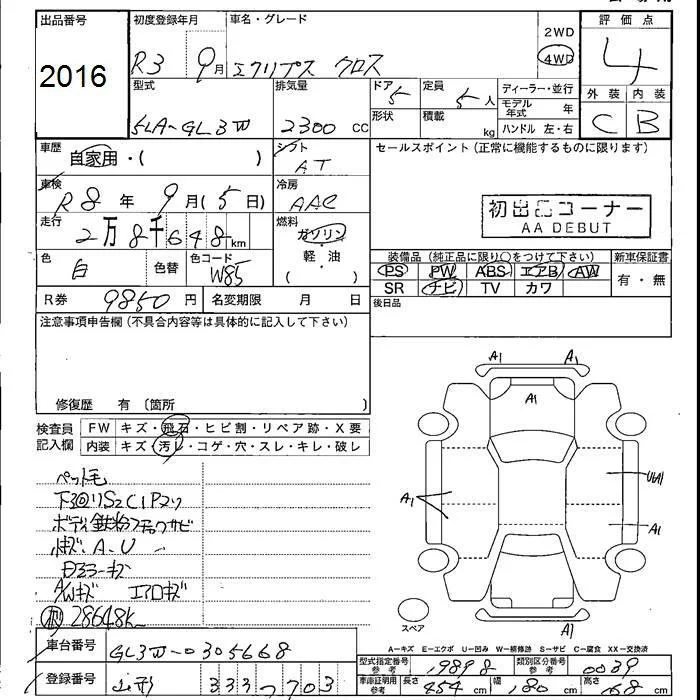 出品番号 初度登録年月 車名・グレード 評価点
2016 R3 9月 エクリプス クロス 2WD 4WD 4
型式 排気量 ドア 5 定員 5人 ディーラー・並行 外装 内装
モデル年式 年
5LA-GL3W 2300 cc 形状 積載 kg ハンドル 左・右 C B
車歴 自家用・( ) シフト AT セールスポイント(正常に機能するものに限ります)
車検 R8年 9月(5日) 冷房 AAC 初出品コーナー
AA DEBUT
走行 2万8千648km 燃料 ガソリン・軽・油 ( )
装備品(純正品に限り○をつけて下さい) 新車保証書
色 白 色替 色コード W85 PS PW ABS エアB AW 有・無
SR ナビ TV カワ
R券 9850円 名変期限 月 日 後日品
注意事項申告欄(不具合内容等は具体的に記入して下さい)
修復歴 有 〔箇所 〕
A1 A1
A1
検査員記入欄 FW キズ・飛石・ヒビ割・リペア跡・X要
内装 キズ・汚レ・コゲ・穴・スレ・キレ・破レ
ペット毛
下廻りS2C1Pマフ
A1 A1
ボディ鉄粉
小キズ A・U
キズ
A/Wキズ エアロキズ
28648K
スペア A1
A-キズ E-エクボ U-凹み W-補修跡 S-サビ C-腐食 XX-交換済
車台番号 GL3W-0305668
型式指定番号 参考 19898 類別区分番号 参考 0039
登録番号 山形 333 7703
車庫証明用 参考 長さ 454cm 幅 180cm 高さ 168cm